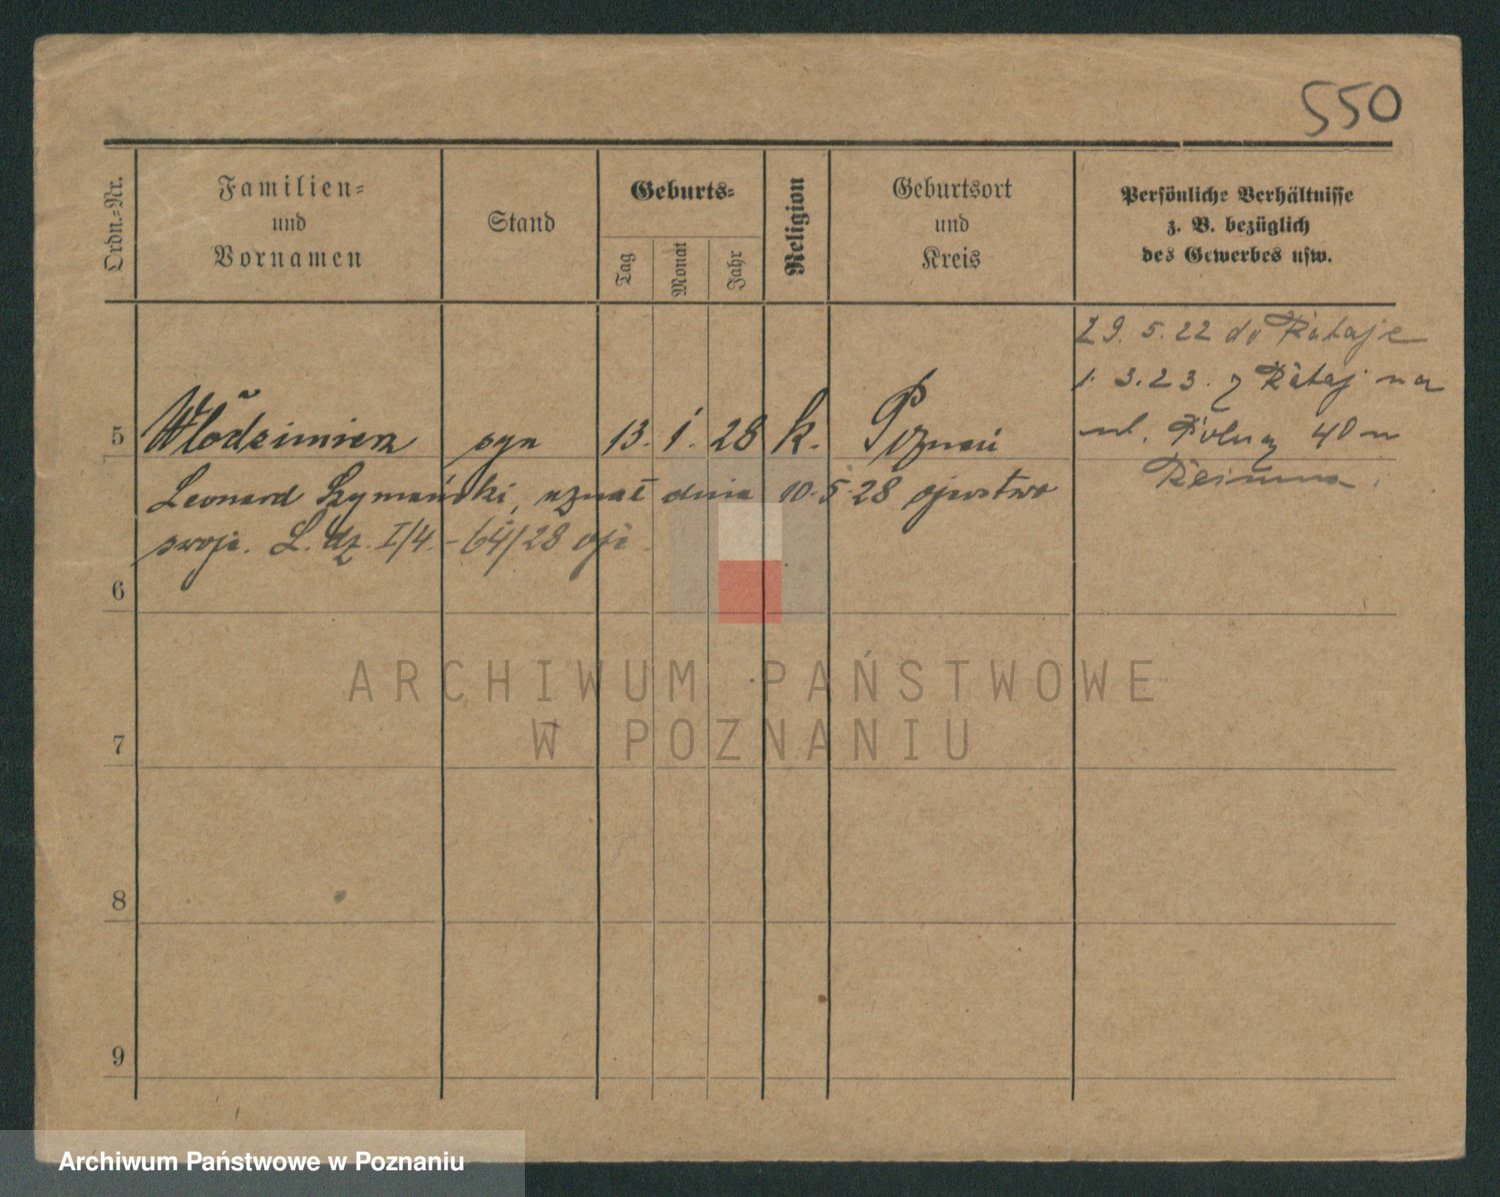 550
Ordn.=Nr.
Familien=
und
Vornamen
Stand
Geburts=
Tag
Monat
Jahr
Religion
Geburtsort
und
Kreis
Persönliche Verhältnisse
z. B. bezüglich
des Gewerbes usw.
29. 5. 22 do Rataje
1. 3. 23. z Rataj na
ul. 40
5 Włodzimierz syn 13. 1. 28 k. Poznań
Leonard Szymański, uznał dnia 10. 5. 28 ojcostwo
swoje. L. dz. I/4. - 64/28
6
7
8
9
ARCHIWUM PAŃSTWOWE
W POZNANIU
Archiwum Państwowe w Poznaniu